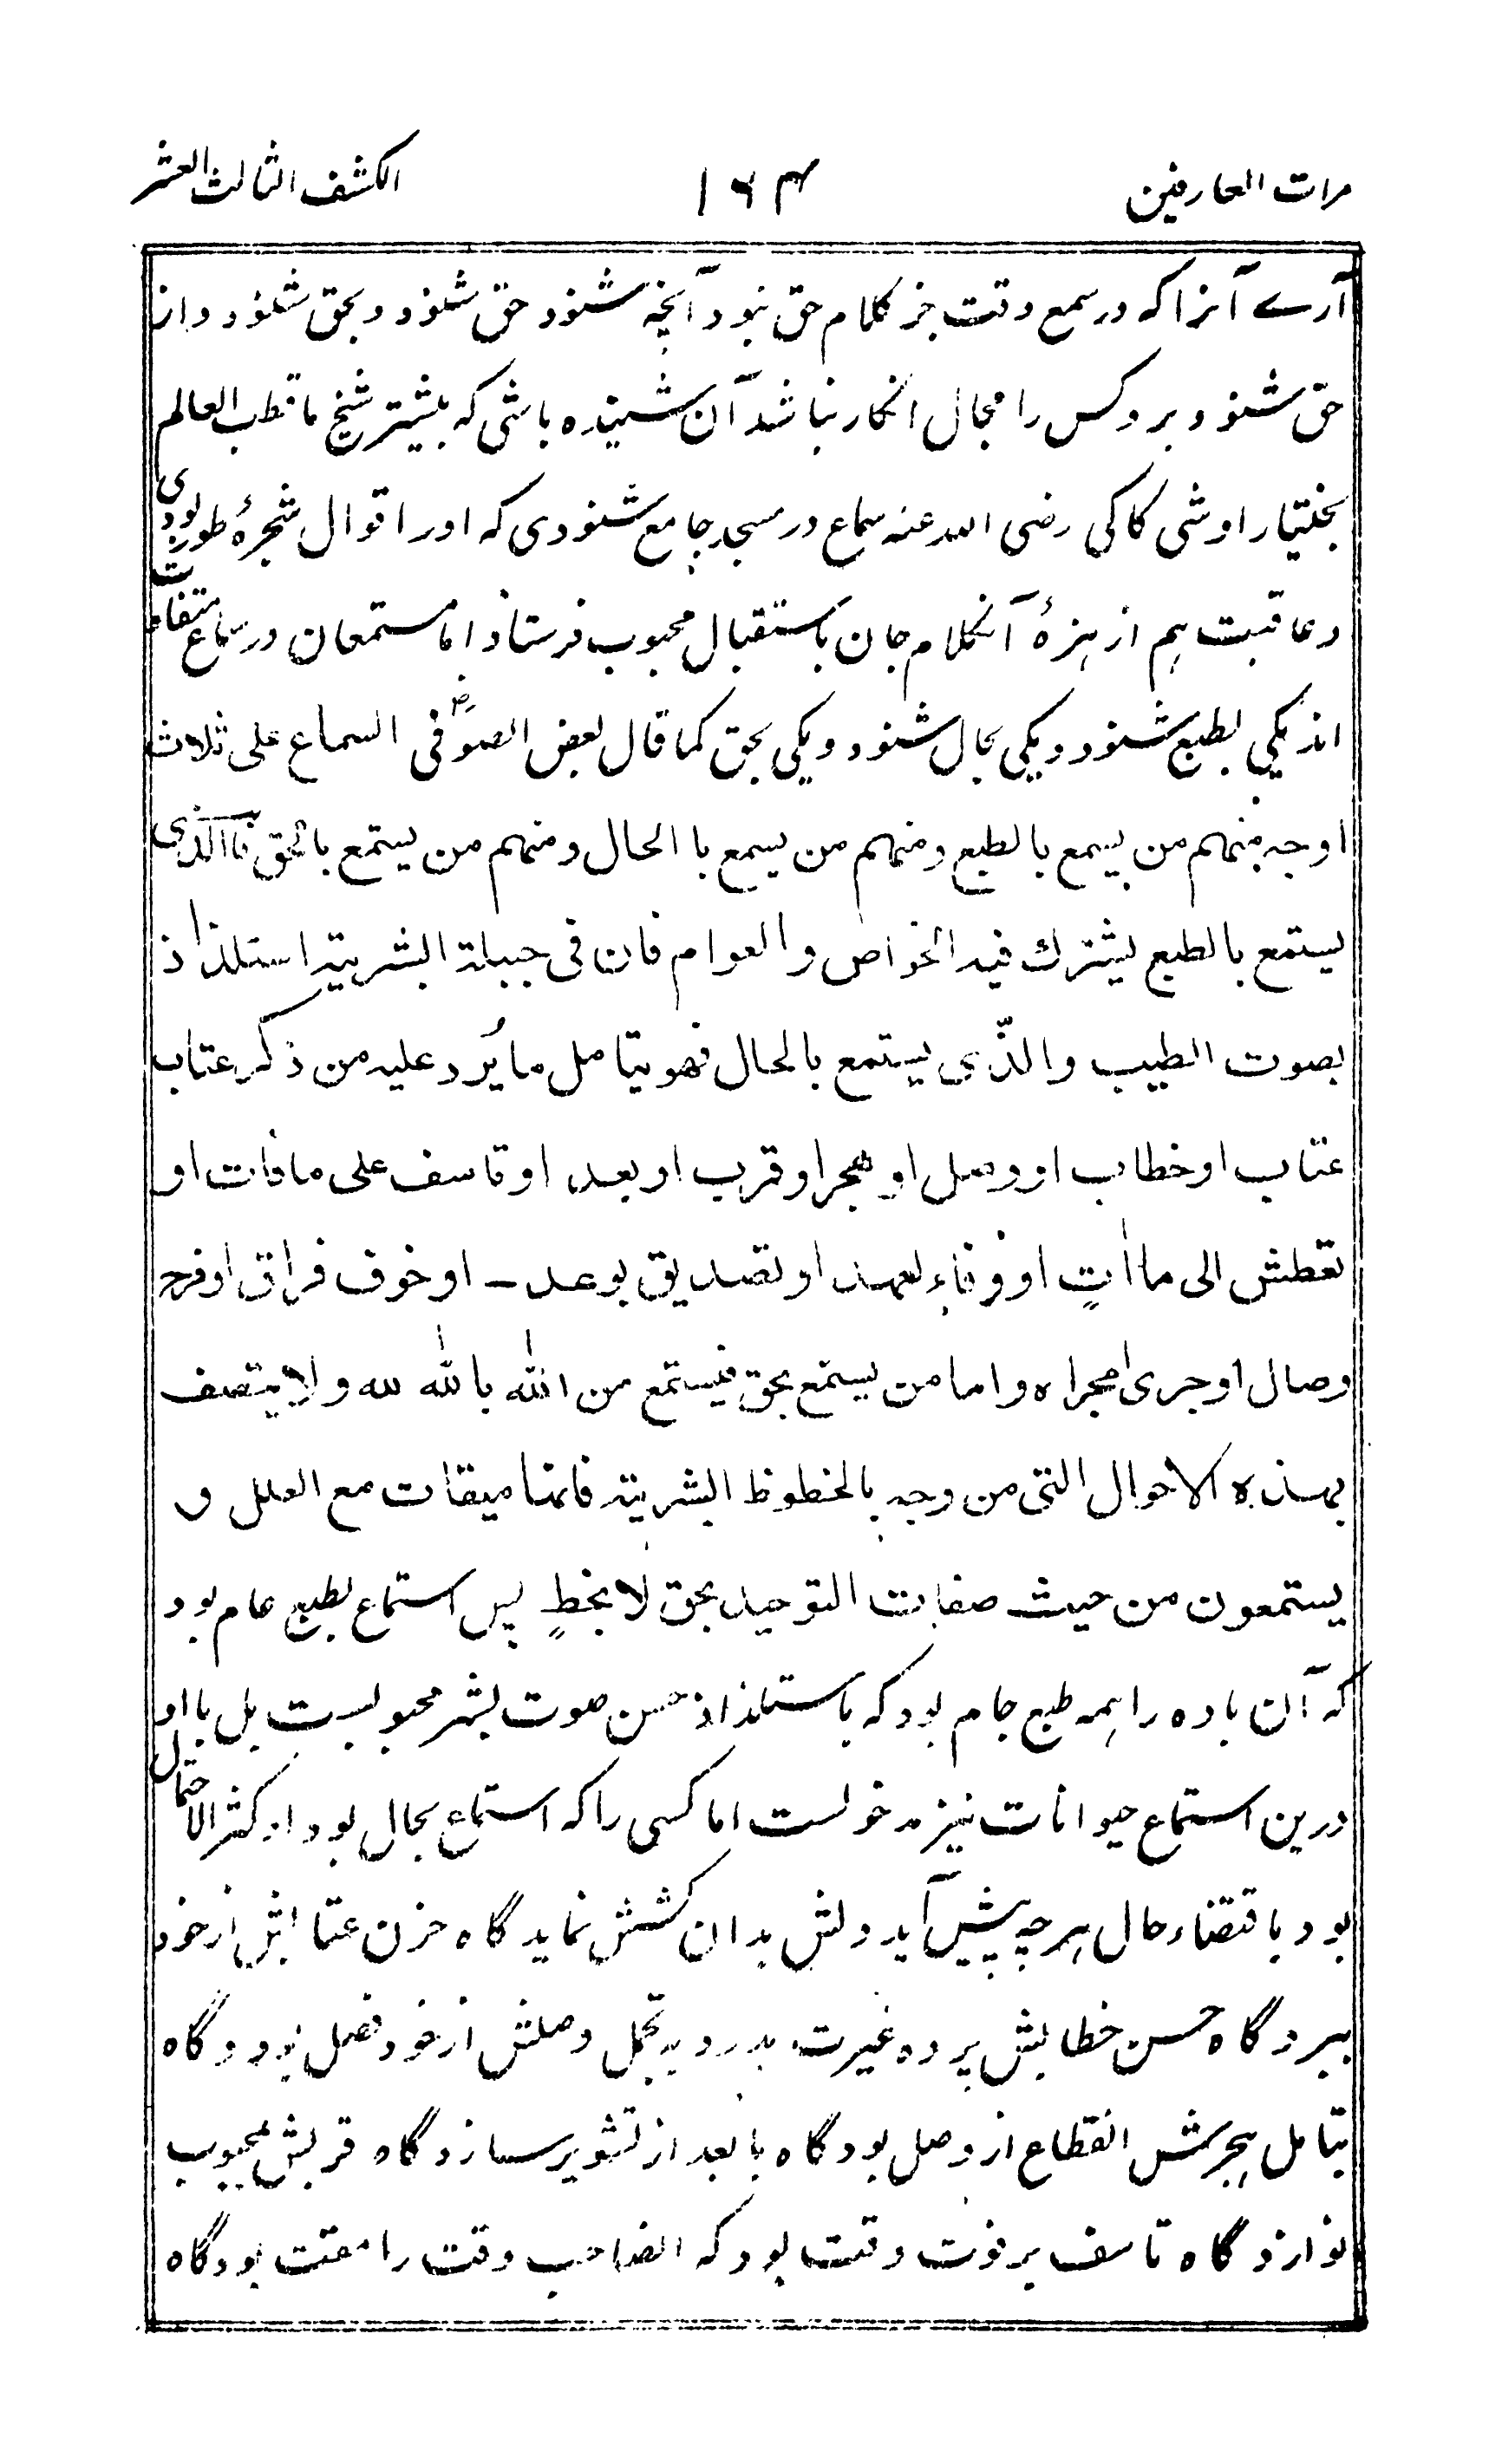 مرات العارفین ۱۶۴ الکشف الثالث العشر
آرے آنرا که در سمع وقت جز کلام حق نبود آنچه شنود حق شنود و بحق شنود و از
حق شنود و بر و کس را مجال انکار نباشد آن شنیده باشی که بیشتر شیخ ما قطب العالم
بختیار اوشی کاکی رضی الله عنه سماع در مسجد جامع شنودی که او را قوال شجرۀ طور بودی
و عاقبت هم از هزۀ آنکلام جان باستقبال محبوب فرستاد اما مستمعان در سماع متفاوت
اند یکی بطبع شنود و یکی بحال شنود و یکی بحق کما قال بعض الصوفی السماع علی ثلاث
اوجه منهم من یسمع بالطبع ومنهم من یسمع با الحال ومنهم من یستمع بالحق فاالذی
یستمع بالطبع یشترك فیه الخواص والعوام فان فی جبلة البشریة استلذاذ
بصوت الطیب والذّی یستمع بالحال فهو یتامل ما یُرد علیه من ذکر عتاب
عتاب او خطاب او وصل او هجر او قرب او بعد او تاسف علی مافات او
تعطش الی ما اٰتٍ او وفاء لعهد او تصدیق بوعد ـ او خوف فراق او فرح
وصال او جری مجراه واما من یستمع بحق فیستمع من الله بالله لله ولا یتصف
بهذه الاحوال التی من وجه بالحظوظ البشریة فانها مبقات مع العلل و
یستمعون من حیث صفات التوحید بحق لا بحظٍ پس استماع بطبع عام بود
که آن باده را همه طبع جام بود که باستلذاذ حسن صوت بشر محبولست بل با او
درین استماع حیوانات نیز مدخولست اما کسی را که استماع بحال بود او کثیر الاحتمال
بود باقتضاء حال هرچه پیش آید دلش بدان کشش نماید گاه حزن عتابش از خود
ببرد گاه حسن خطابش پرده غیرت بدرد به تجمل وصلش از خود فصل بود و گاه
بتامل هجرش انقطاع از وصل بود گاه با بعد از تشویر سازد گاه قربش محبوب
نوازد گاه تاسف بر فوت وقت بود که الصاحب وقت را مقت بود گاه